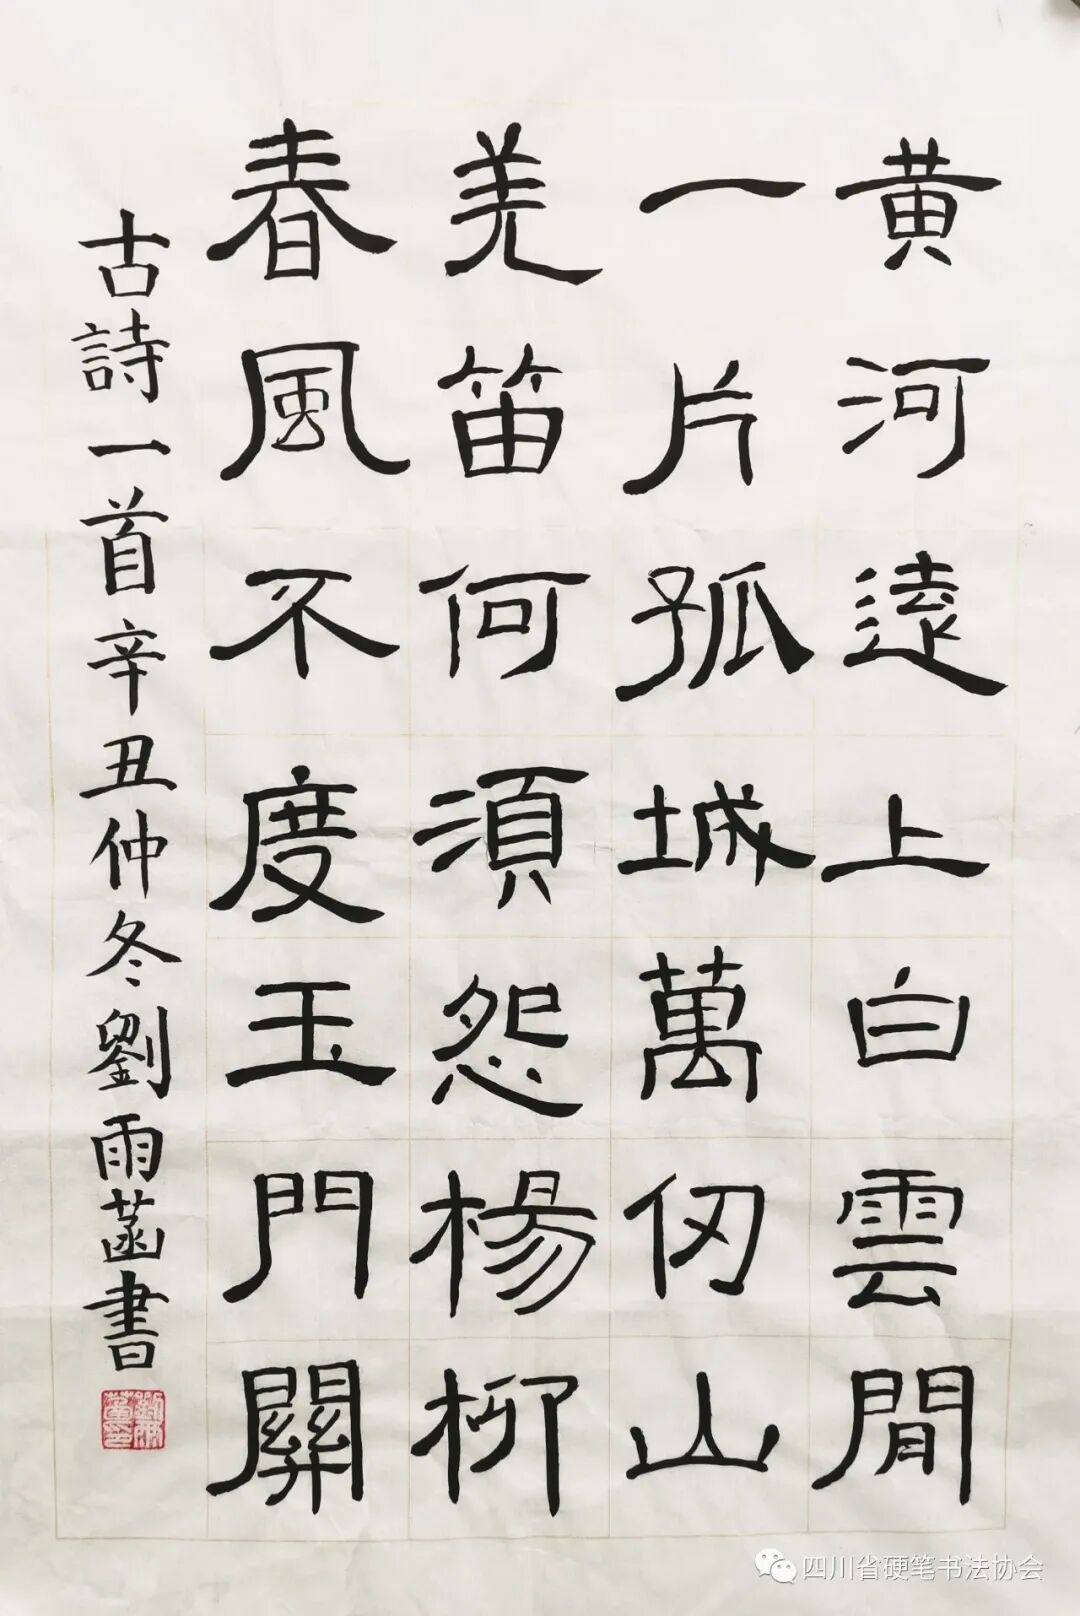 黄河遠上白雲間
一片孤城萬仞山
羌笛何須怨楊柳
春風不度玉門關
古詩一首辛丑仲冬劉雨菡書
四川省硬笔书法协会